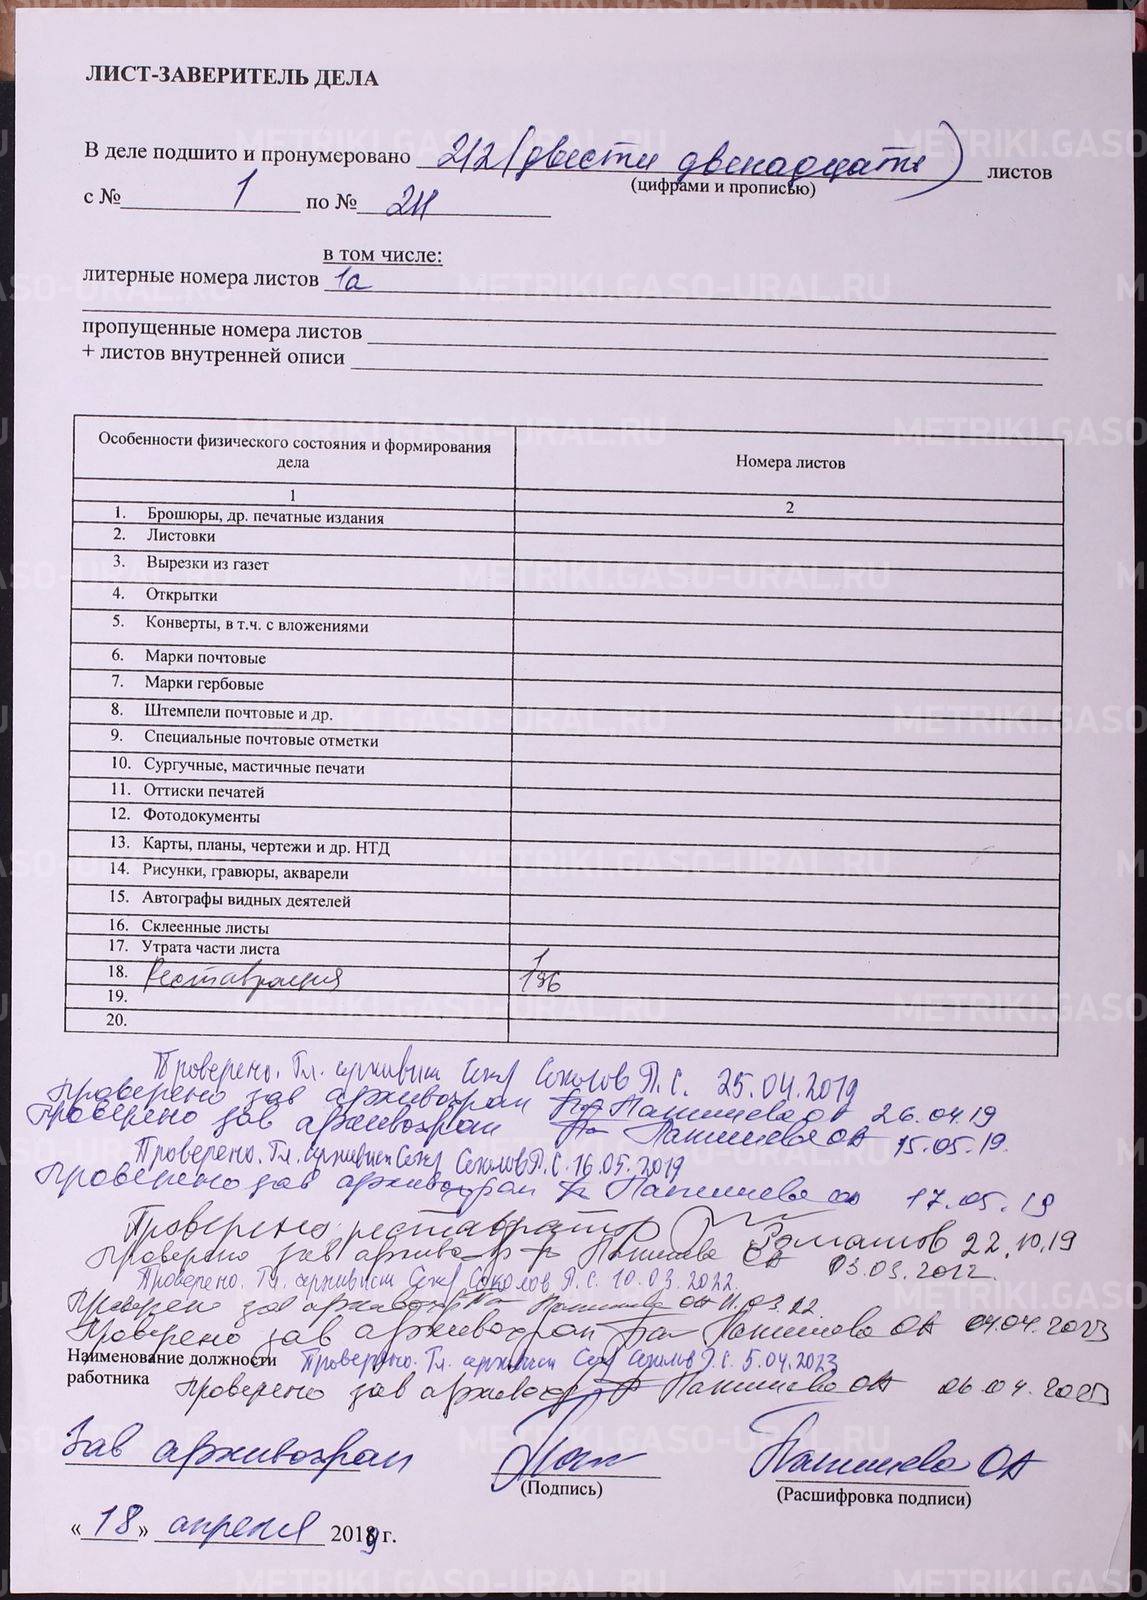 ЛИСТ-ЗАВЕРИТЕЛЬ ДЕЛА
В деле подшито и пронумеровано 212 (двести двенадцать) листов
(цифрами и прописью)
с № 1 по № 211
в том числе:
литерные номера листов 1а
пропущенные номера листов
+ листов внутренней описи
Особенности физического состояния и формирования дела
Номера листов
1
2
1. Брошюры, др. печатные издания
2. Листовки
3. Вырезки из газет
4. Открытки
5. Конверты, в т.ч. с вложениями
6. Марки почтовые
7. Марки гербовые
8. Штемпели почтовые и др.
9. Специальные почтовые отметки
10. Сургучные, мастичные печати
11. Оттиски печатей
12. Фотодокументы
13. Карты, планы, чертежи и др. НТД
14. Рисунки, гравюры, акварели
15. Автографы видных деятелей
16. Склеенные листы
17. Утрата части листа 1
18. Реставрация 196
19.
20.
Проверено. Гл. архивист Соколов П.С. 25.04.2019
Проверено зав архивохран ОА 26.04.19
Проверено зав архивохран ОА 15.05.19.
Проверено. Гл. архивист Соколов П.С. 16.05.2019
Проверено зав архивохран 17.05.19
Проверено: реставратор Романов 22.10.19
Проверено зав архивохр ОА 03.03.2022
Проверено. Гл. архивист Соколов П.С. 10.03.2022.
Проверено зав архивохр ОА 11.03.22
Проверено зав архивохран ОА 04.04.2023
Наименование должности Проверено. Гл. архивист Соколов П.С. 5.04.2023
работника Проверено зав архивохр ОА 06.04.2023
Зав архивохран ОА
(Подпись)
(Расшифровка подписи)
«18» апреля 2019 г.
METRIKI.GASO-URAL.RU